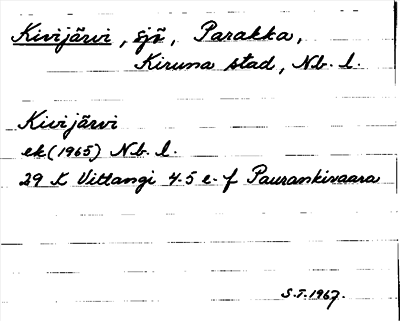 Kivijärvi, sjö, Parakka,
Kiruna stad, Nb. l.
Kivijärvi
ek (1965) Nb. l.
29 K Vittangi 4-5 e-f Paurankivaara
S.J. 1967.